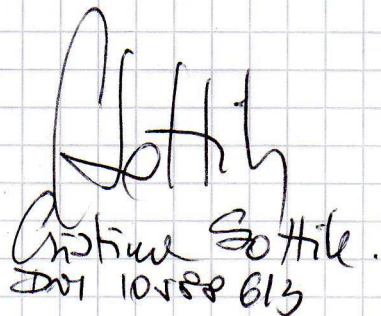 Sottile
Cristina Sottile.
DNI 10588613